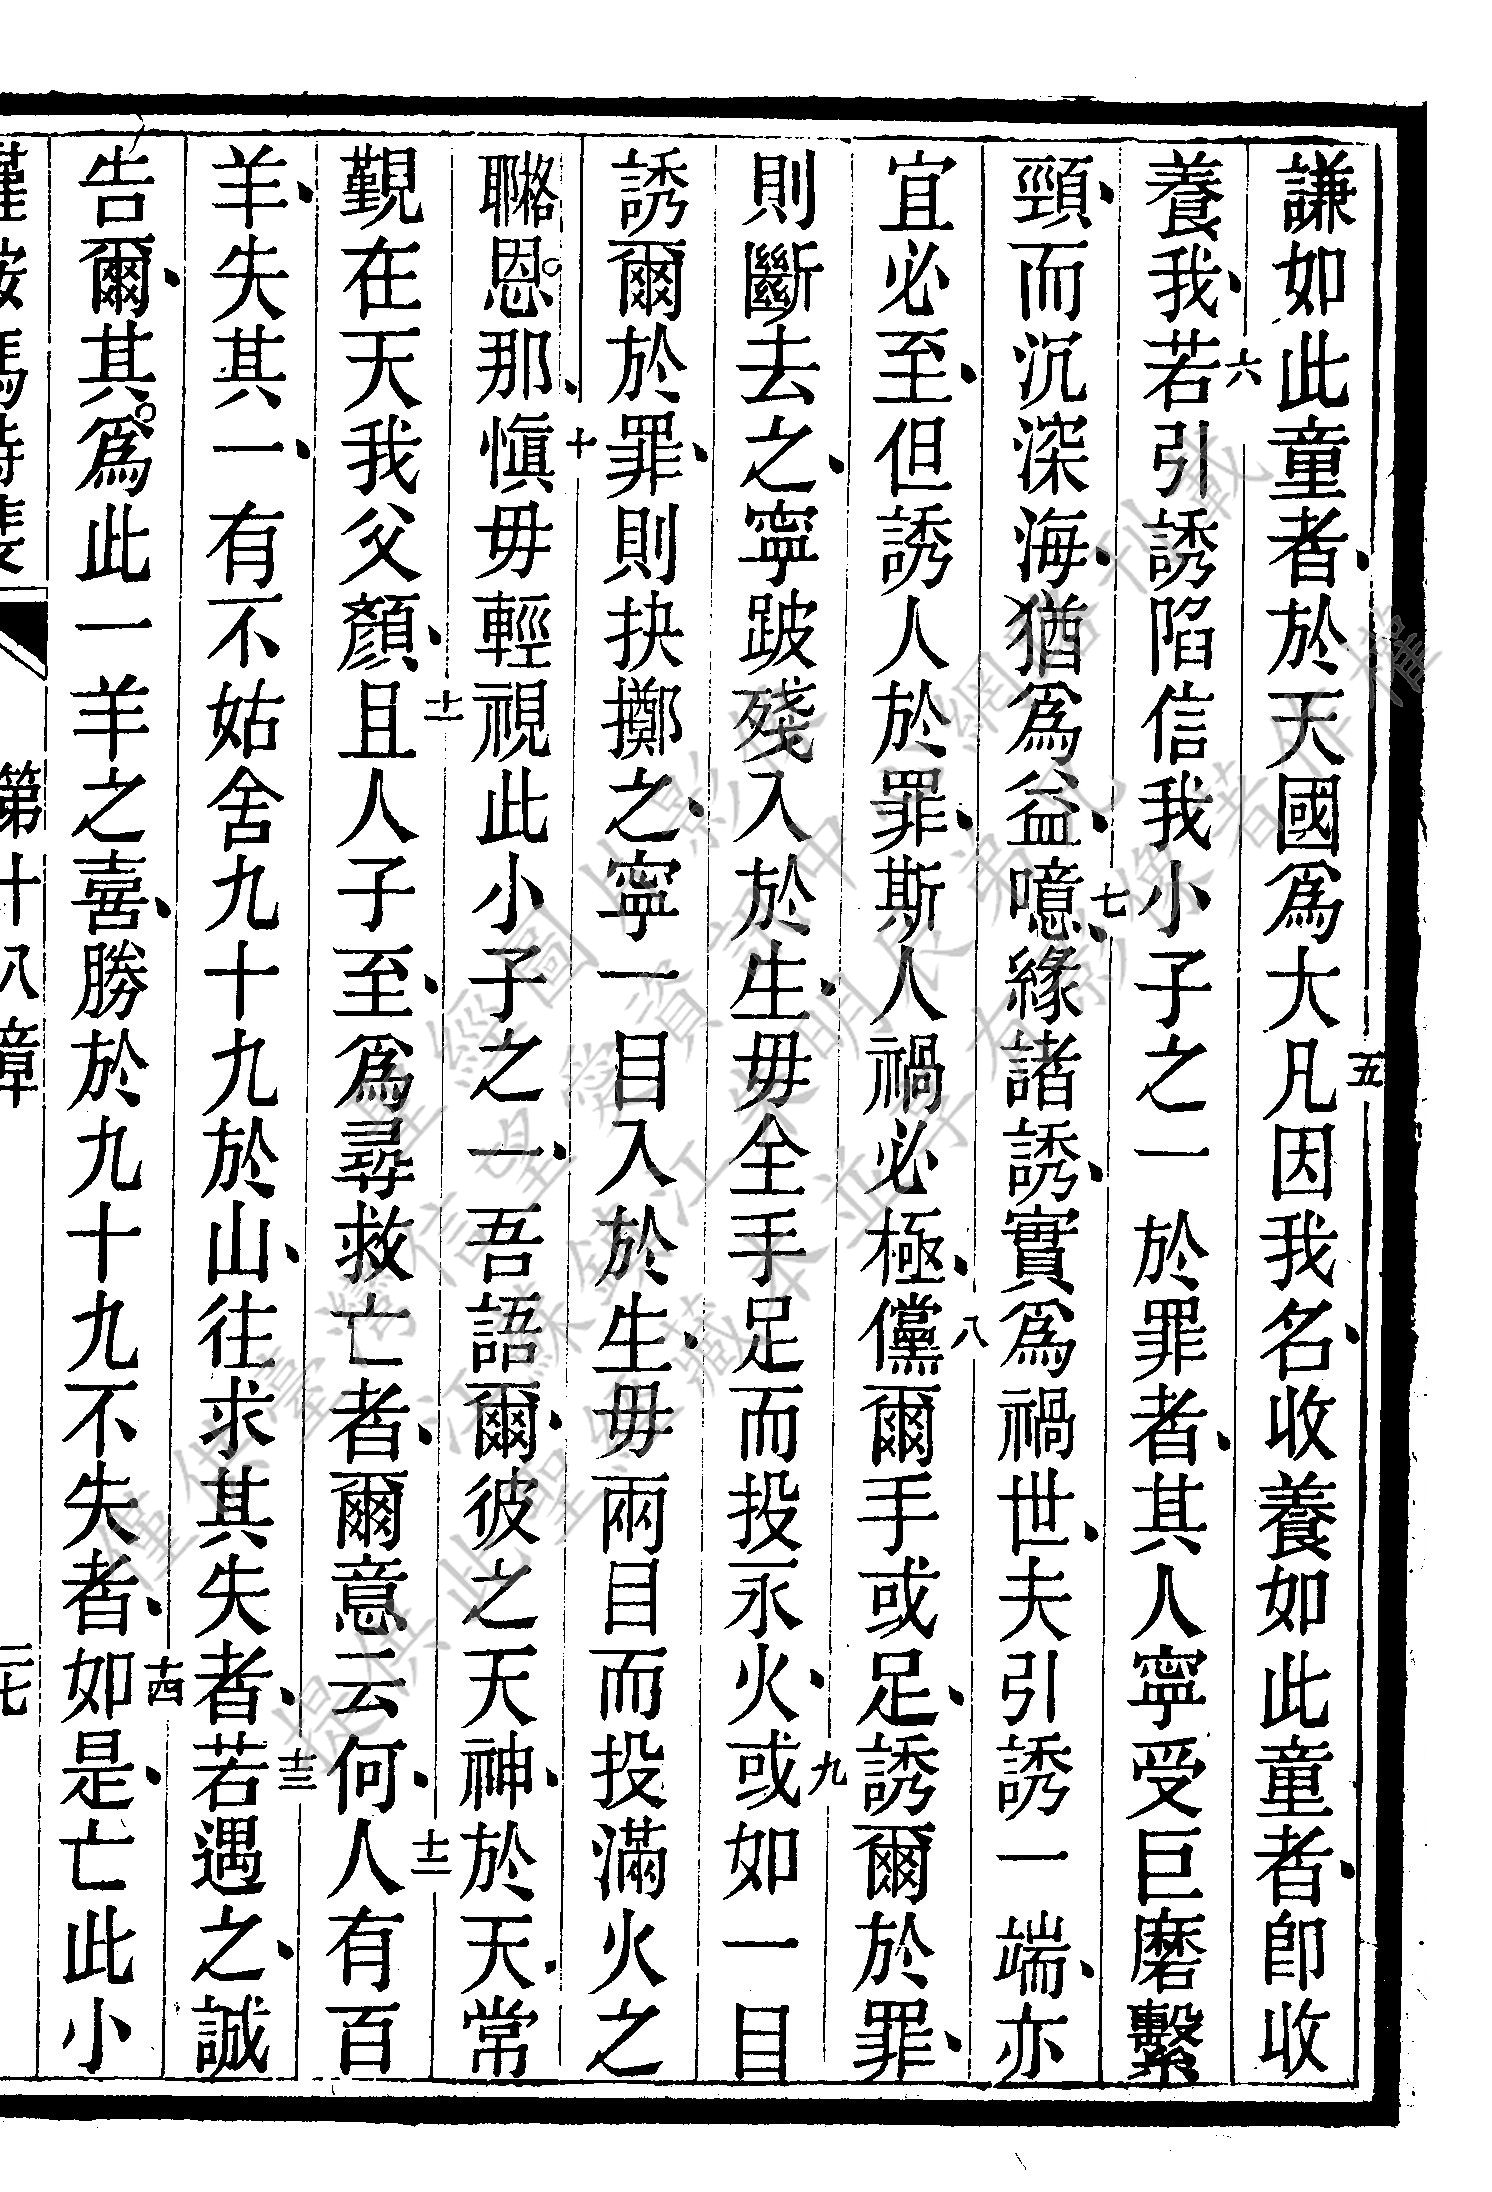 謙如此童者、於天國爲大五凡因我名、收養如此童者、卽收
養我、六若引誘陷信我小子之一於罪者、其人寧受巨磨繫
頸、而沉深海、猶爲益、七噫、緣諸誘、實爲禍世、夫引誘一端、亦
宜必至、但誘人於罪、斯人禍必極、八儻爾手或足、誘爾於罪、
則斷去之、寧跛殘入於生、毋全手足而投永火、九或如一目
誘爾於罪、則抉擲之、寧一目入於生、毋兩目而投滿火之
𦗻恩那、十愼毋輕視此小子之一、吾語爾、彼之天神、於天、常
覲在天我父顏、十一且人子至、爲尋救亡者、爾意云何、十二人有百
羊、失其一、有不姑舍九十九於山、往求其失者、十三若遇之、誠
告爾、其爲此一羊之喜、勝於九十九不失者、十四如是、亡此小
第十八章